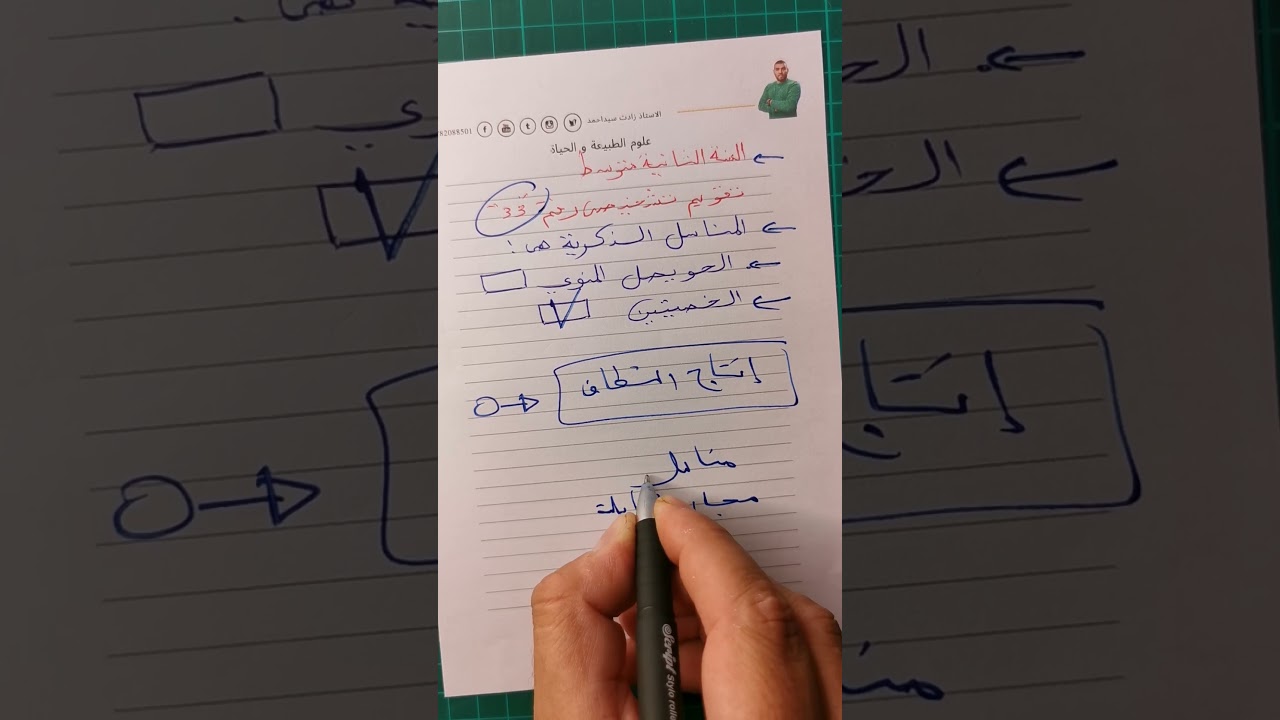 الاستاذ زادت سيداحمد
82088501
علوم الطبيعة و الحياة
السنة الثانية متوسط
تقويم تشخيصي رقم - 33 -
المناسل الذكرية هي :
الحويصل المنوي
الخصيتين
إنتاج النطاف
مناسل
مجار ناقلة